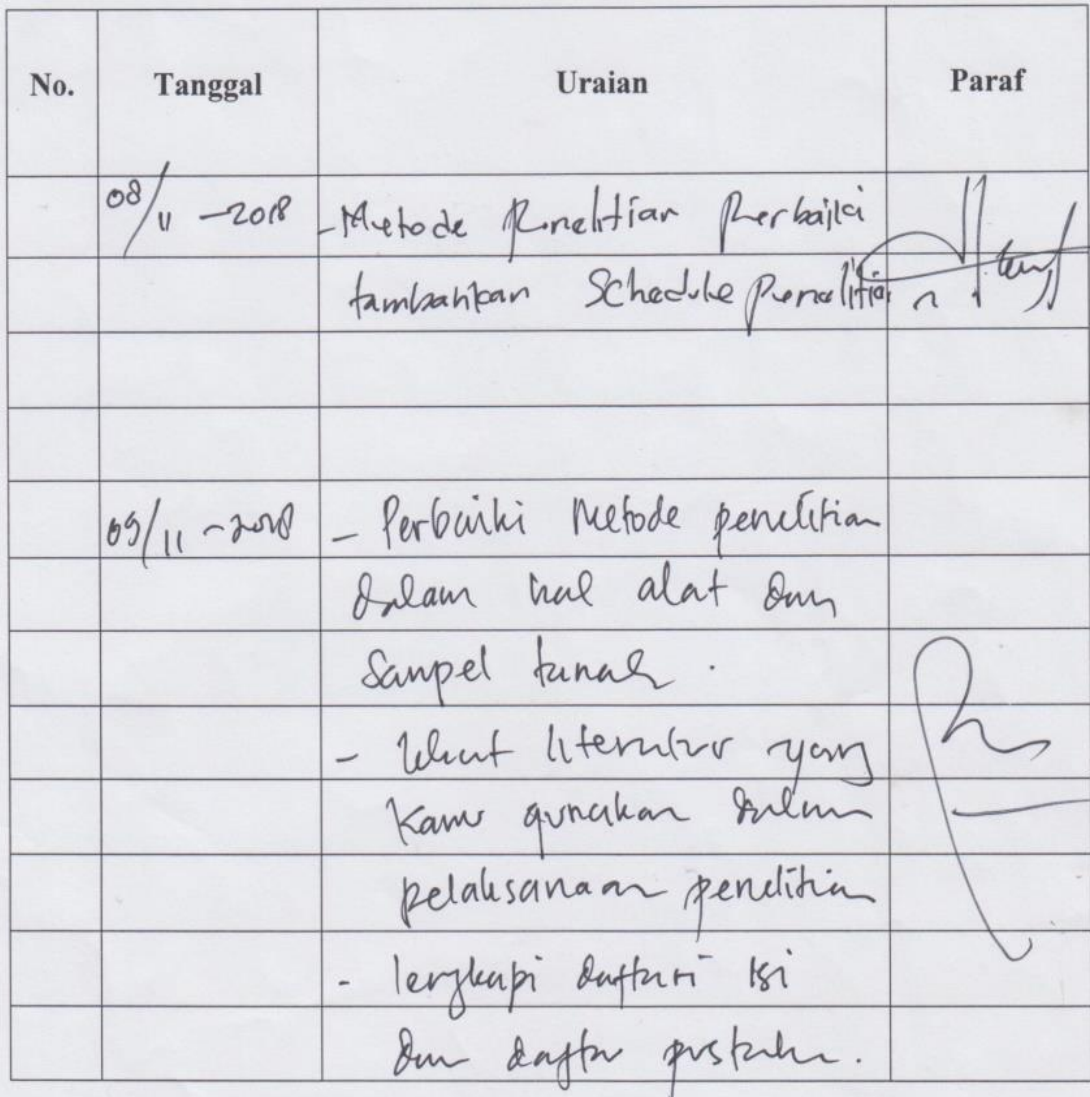 No. Tanggal Uraian Paraf
08/11 - 2018 - Metode Penelitian Perbaiki
tambahkan Schedule Penelitian
09/11 - 2018 - Perbaiki Metode penelitian
dalam hal alat dan
Sampel tanah.
- literatur yang
Kamu gunakan dalam
pelaksanaan penelitian
- lengkapi daftar isi
dan daftar pustaka.